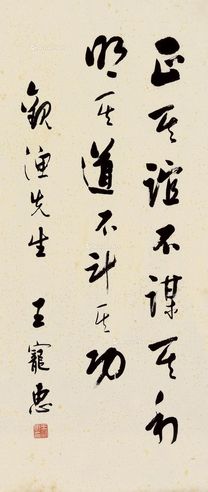 正其誼不謀其利
明其道不計其功
觀漁先生 王寵惠